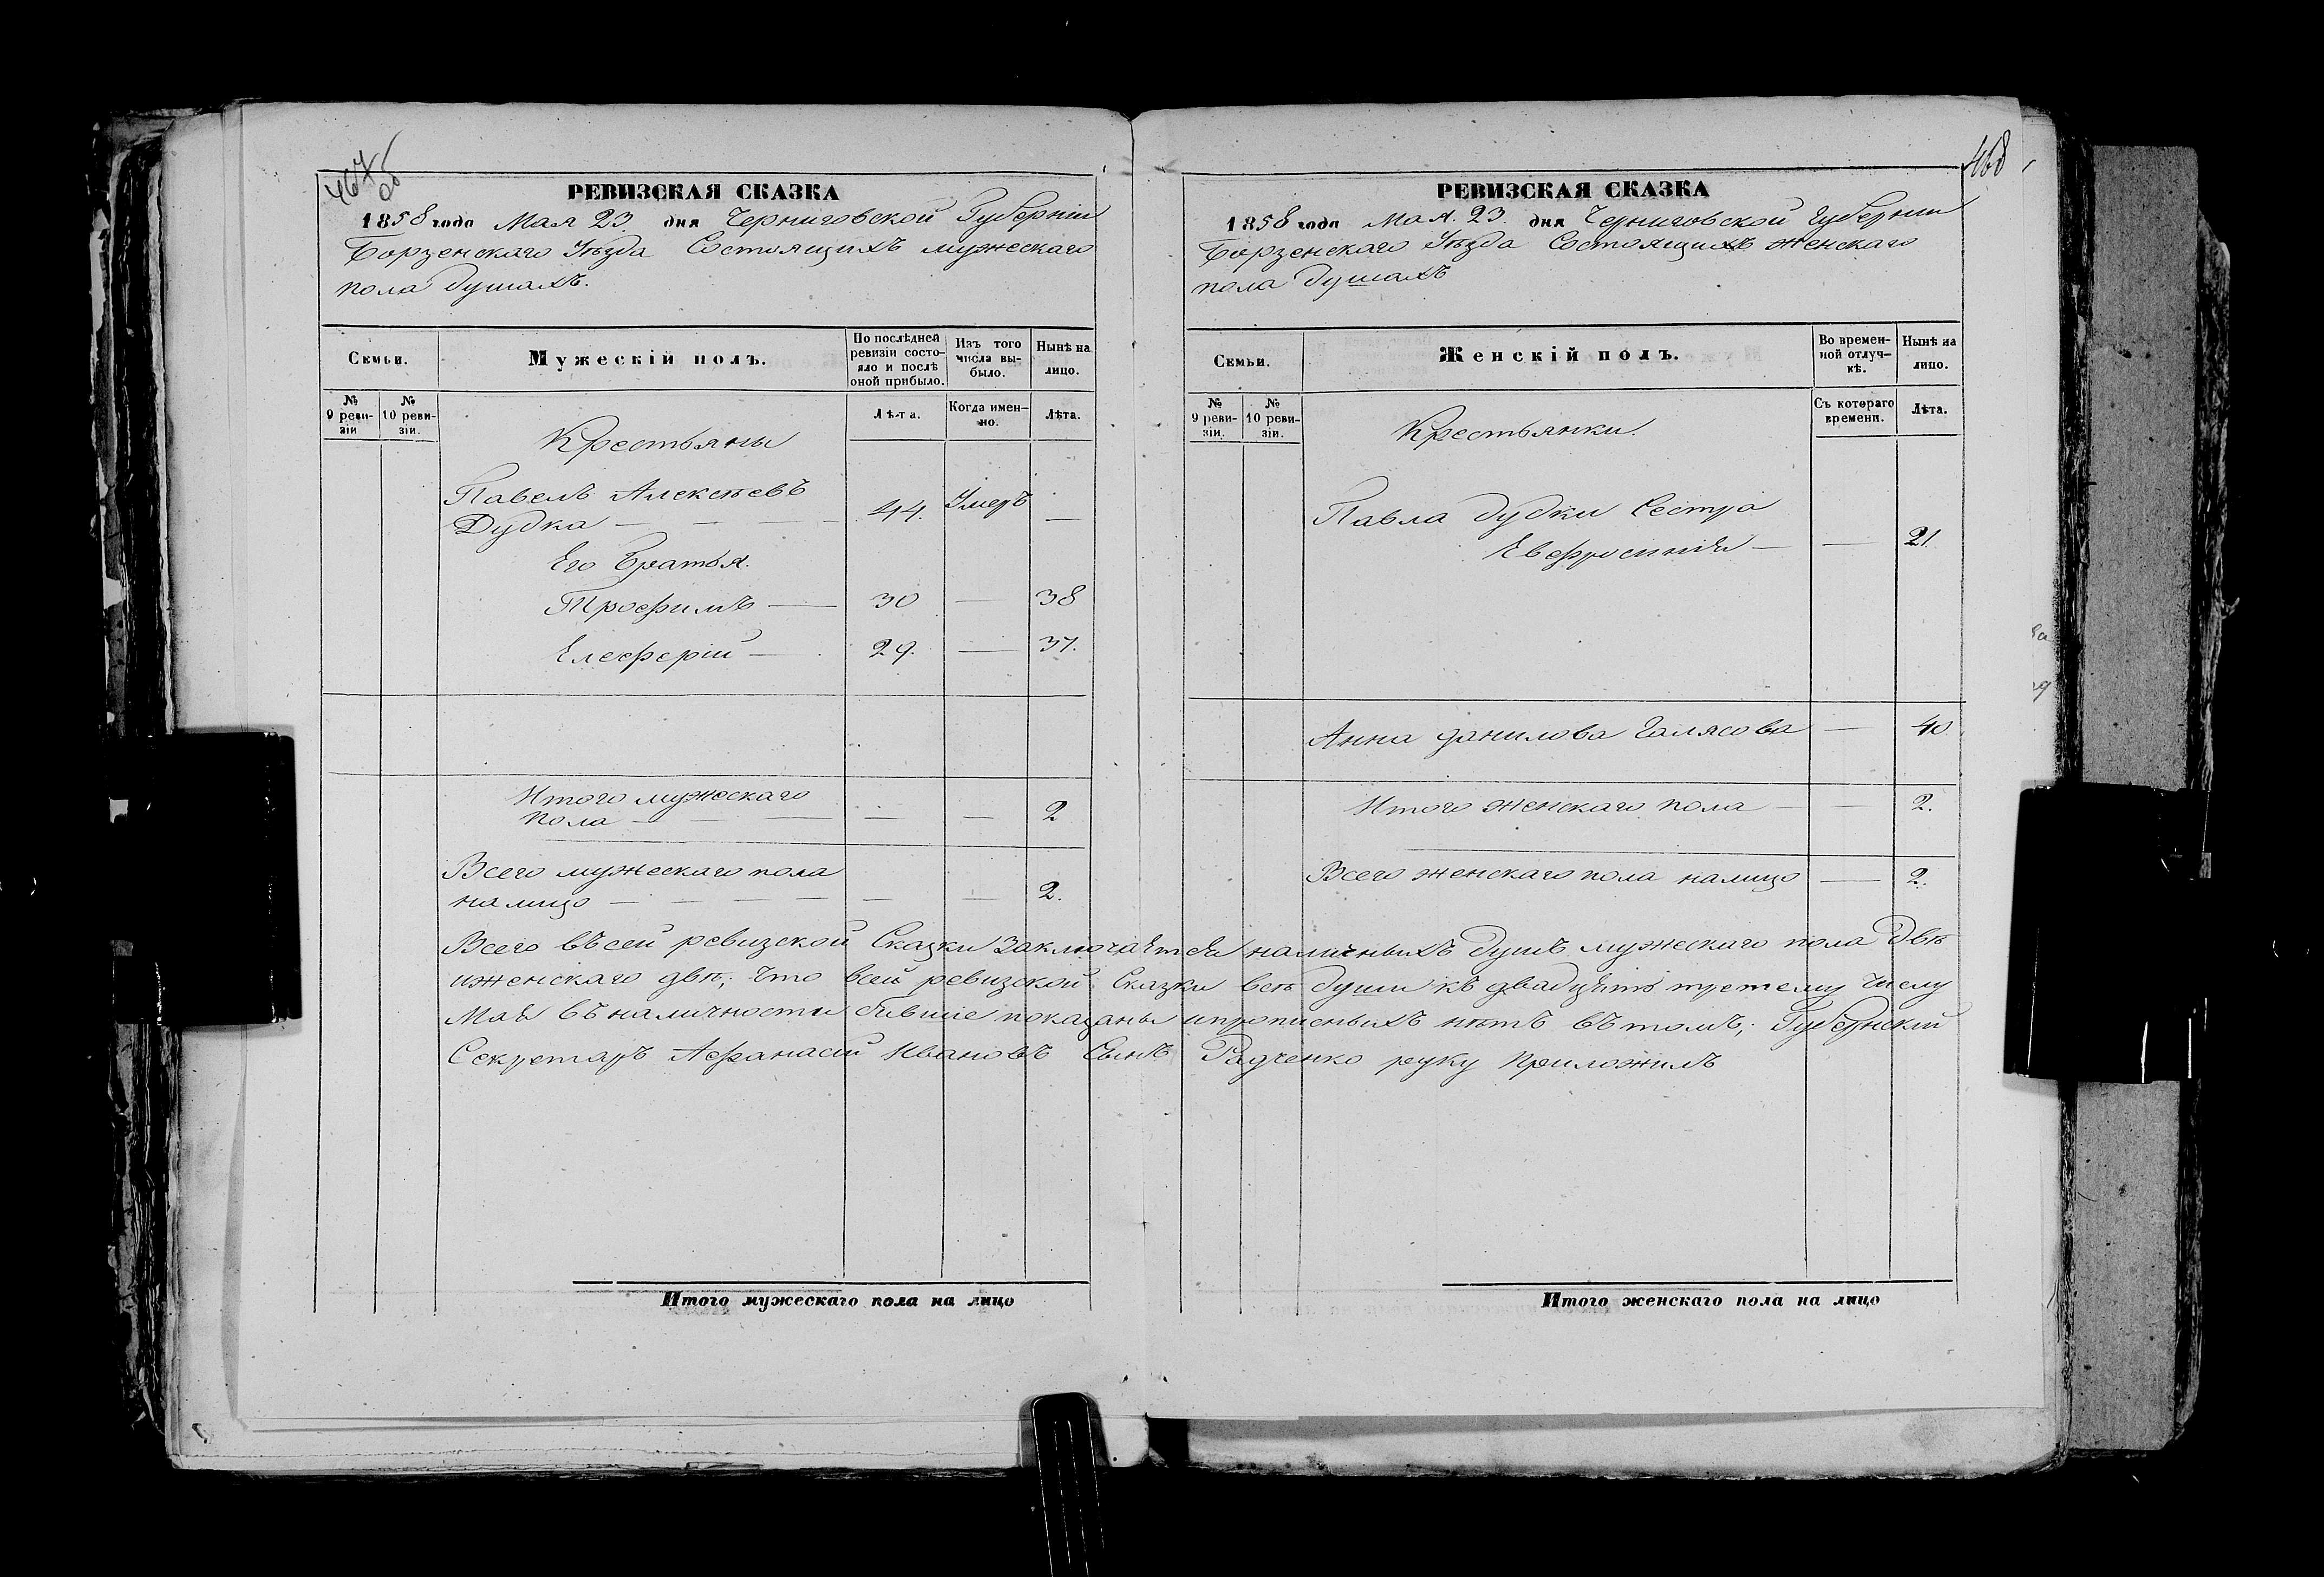 467 об
РЕВИЗСКАЯ СКАЗКА
1858 года Мая 23. дня Черниговской Губерніи
Борзенскаго Уѣзда Состоящихъ мужескаго
пола душахъ.
Семьи.
Мужескій полъ.
По послѣдней ревизіи состояло и послѣ оной прибыло.
Изъ того числа выбыло.
Нынѣ на лицо.
№ 9 ревизіи
№ 10 ревизіи.
Лѣта.
Когда именно.
Лѣта.
Крестьяны
Павелъ Алексѣевъ
Дудка — — — 44. Умеръ —
Его Братья.
Трофимъ — 30 — 38
Елеферій — 29. — 37.
Итого мужескаго
пола — — — — — 2
Всего мужескаго пола
налицо — — — — — — 2.
468
РЕВИЗСКАЯ СКАЗКА
1858 года Мая. 23. дня Черниговской Губерніи
Борзенскаго Уѣзда Состоящихъ женскаго
пола душахъ
Семьи.
Женскій полъ.
Во временной отлучкѣ.
Нынѣ на лицо.
№ 9 ревизіи.
№ 10 ревизіи.
Съ котораго времени.
Лѣта.
Крестьянки.
Павла дудки Сестра
Евфросинія — — 21
Анна данилова Галясова — 40.
Итого женскаго пола — — 2.
Всего женскаго пола налицо — 2.
Всего въ сей ревизской Сказки заключаѣтся наличныхъ душъ мужескаго пола Двѣ
иженскаго двѣ; что всей ревизской Сказки всѣ души къ двадцать третему числу
Мая въ наличности бывшіе показаны ипрописныхъ нѣтъ въ томъ; Губернскій
Секретарь Афанасій Ивановъ Сынъ Радченко руку приложилъ
Итого мужескаго пола на лицо
Итого женскаго пола на лицо